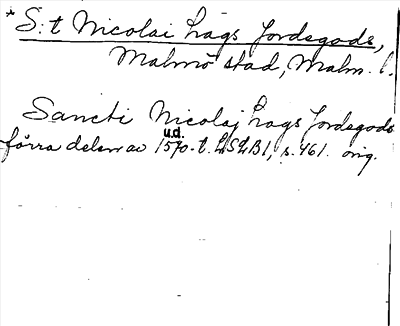 * S:t Nicolai Lags Jordagods,
Malmö stad, Malm. l.
Sancti Nicolaj Lags Jordagods
u.d.
förra delen av 1570-t. LSLB1, s. 461. orig.